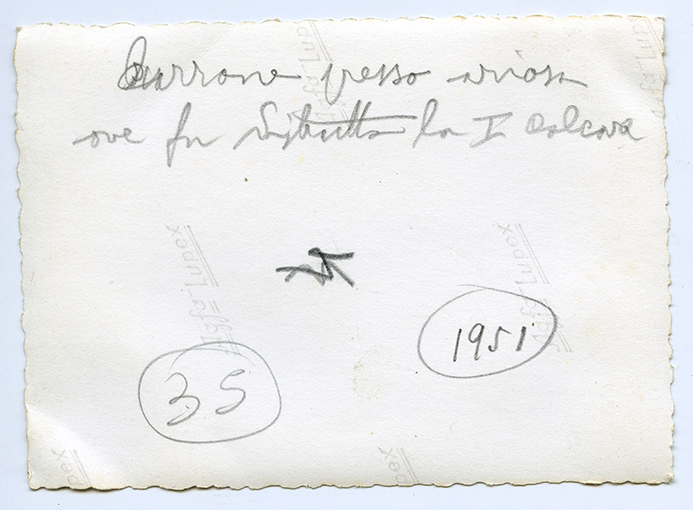 Burrone presso
ove fu distrutta la I
Agfa-Lupex
Agfa-Lupex
Agfa-Lupex
Agfa-Lupex
1951
35
pex
pex